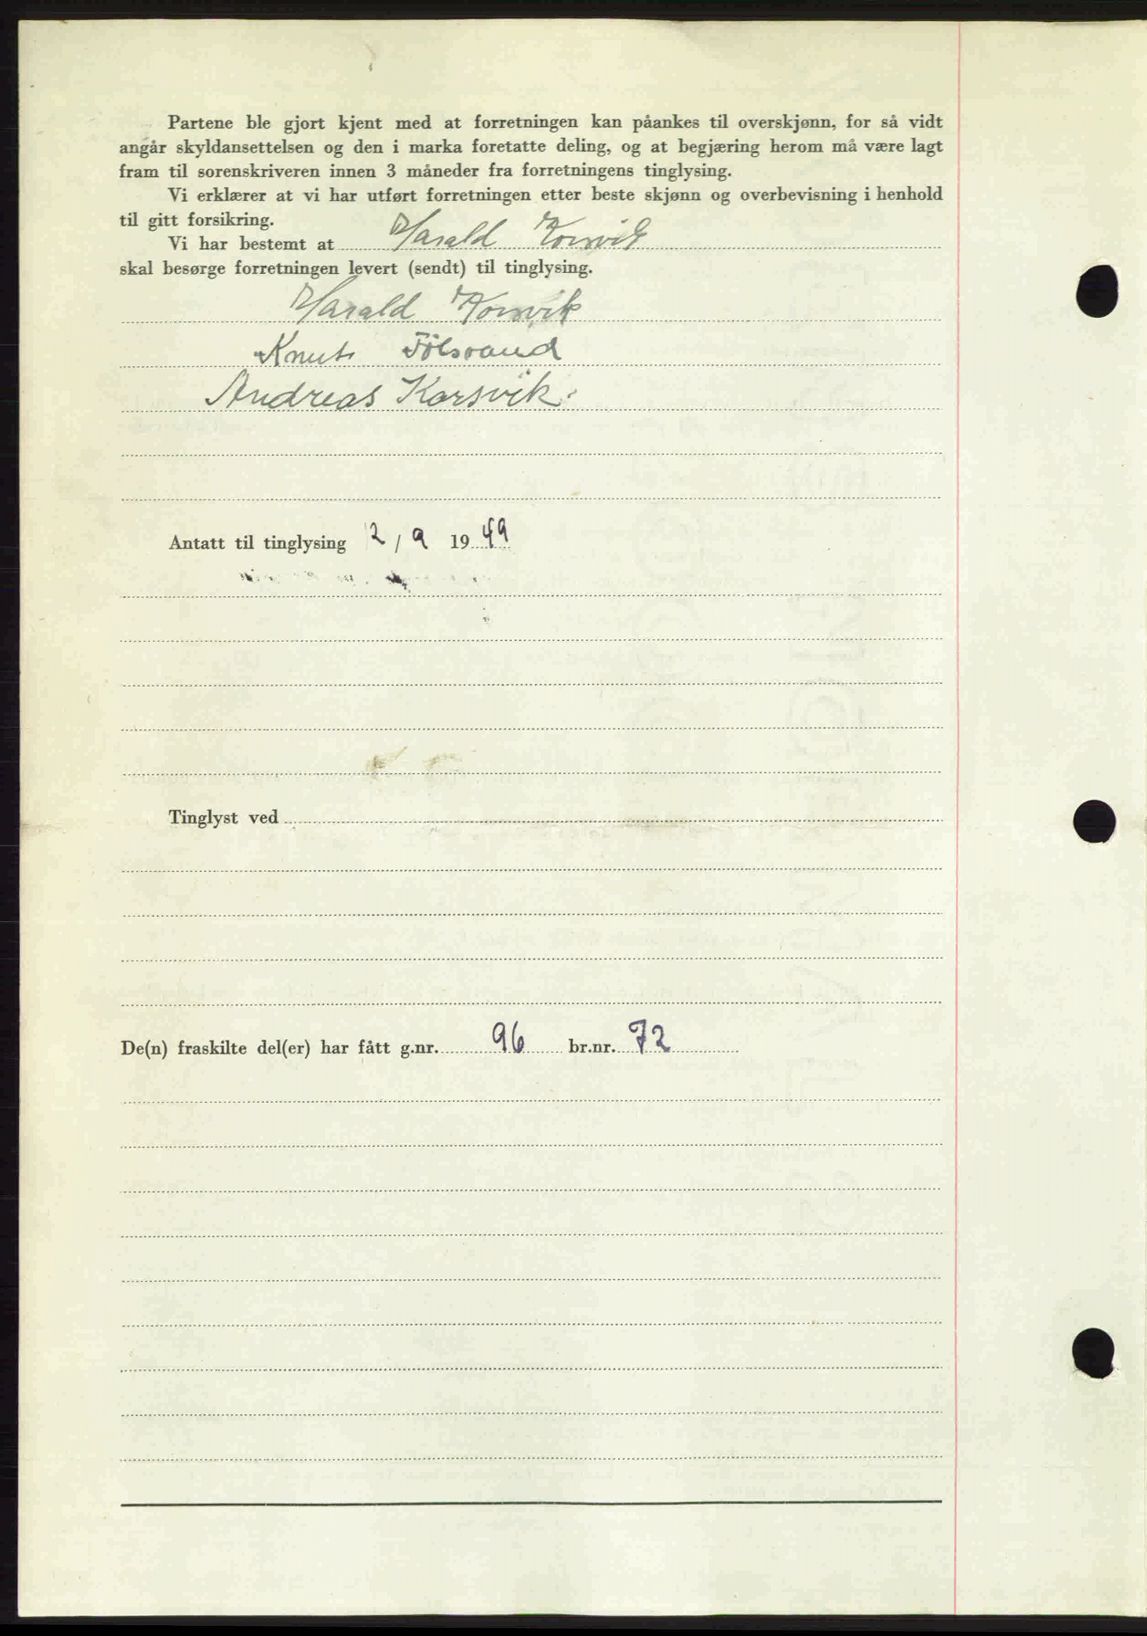 Partene ble gjort kjent med at forretningen kan påankes til overskjønn, for så vidt
angår skyldansettelsen og den i marka foretatte deling, og at begjæring herom må være lagt
fram til sorenskriveren innen 3 måneder fra forretningens tinglysing.
Vi erklærer at vi har utført forretningen etter beste skjønn og overbevisning i henhold
til gitt forsikring.
Vi har bestemt at Harald Korsvik
skal besørge forretningen levert (sendt) til tinglysing.
Harald Korsvik
Knut
Andreas Korsvik.
Antatt til tinglysing 2 / 9 19 49
Tinglyst ved
De(n) fraskilte del(er) har fått g.nr. 96 br.nr. 72